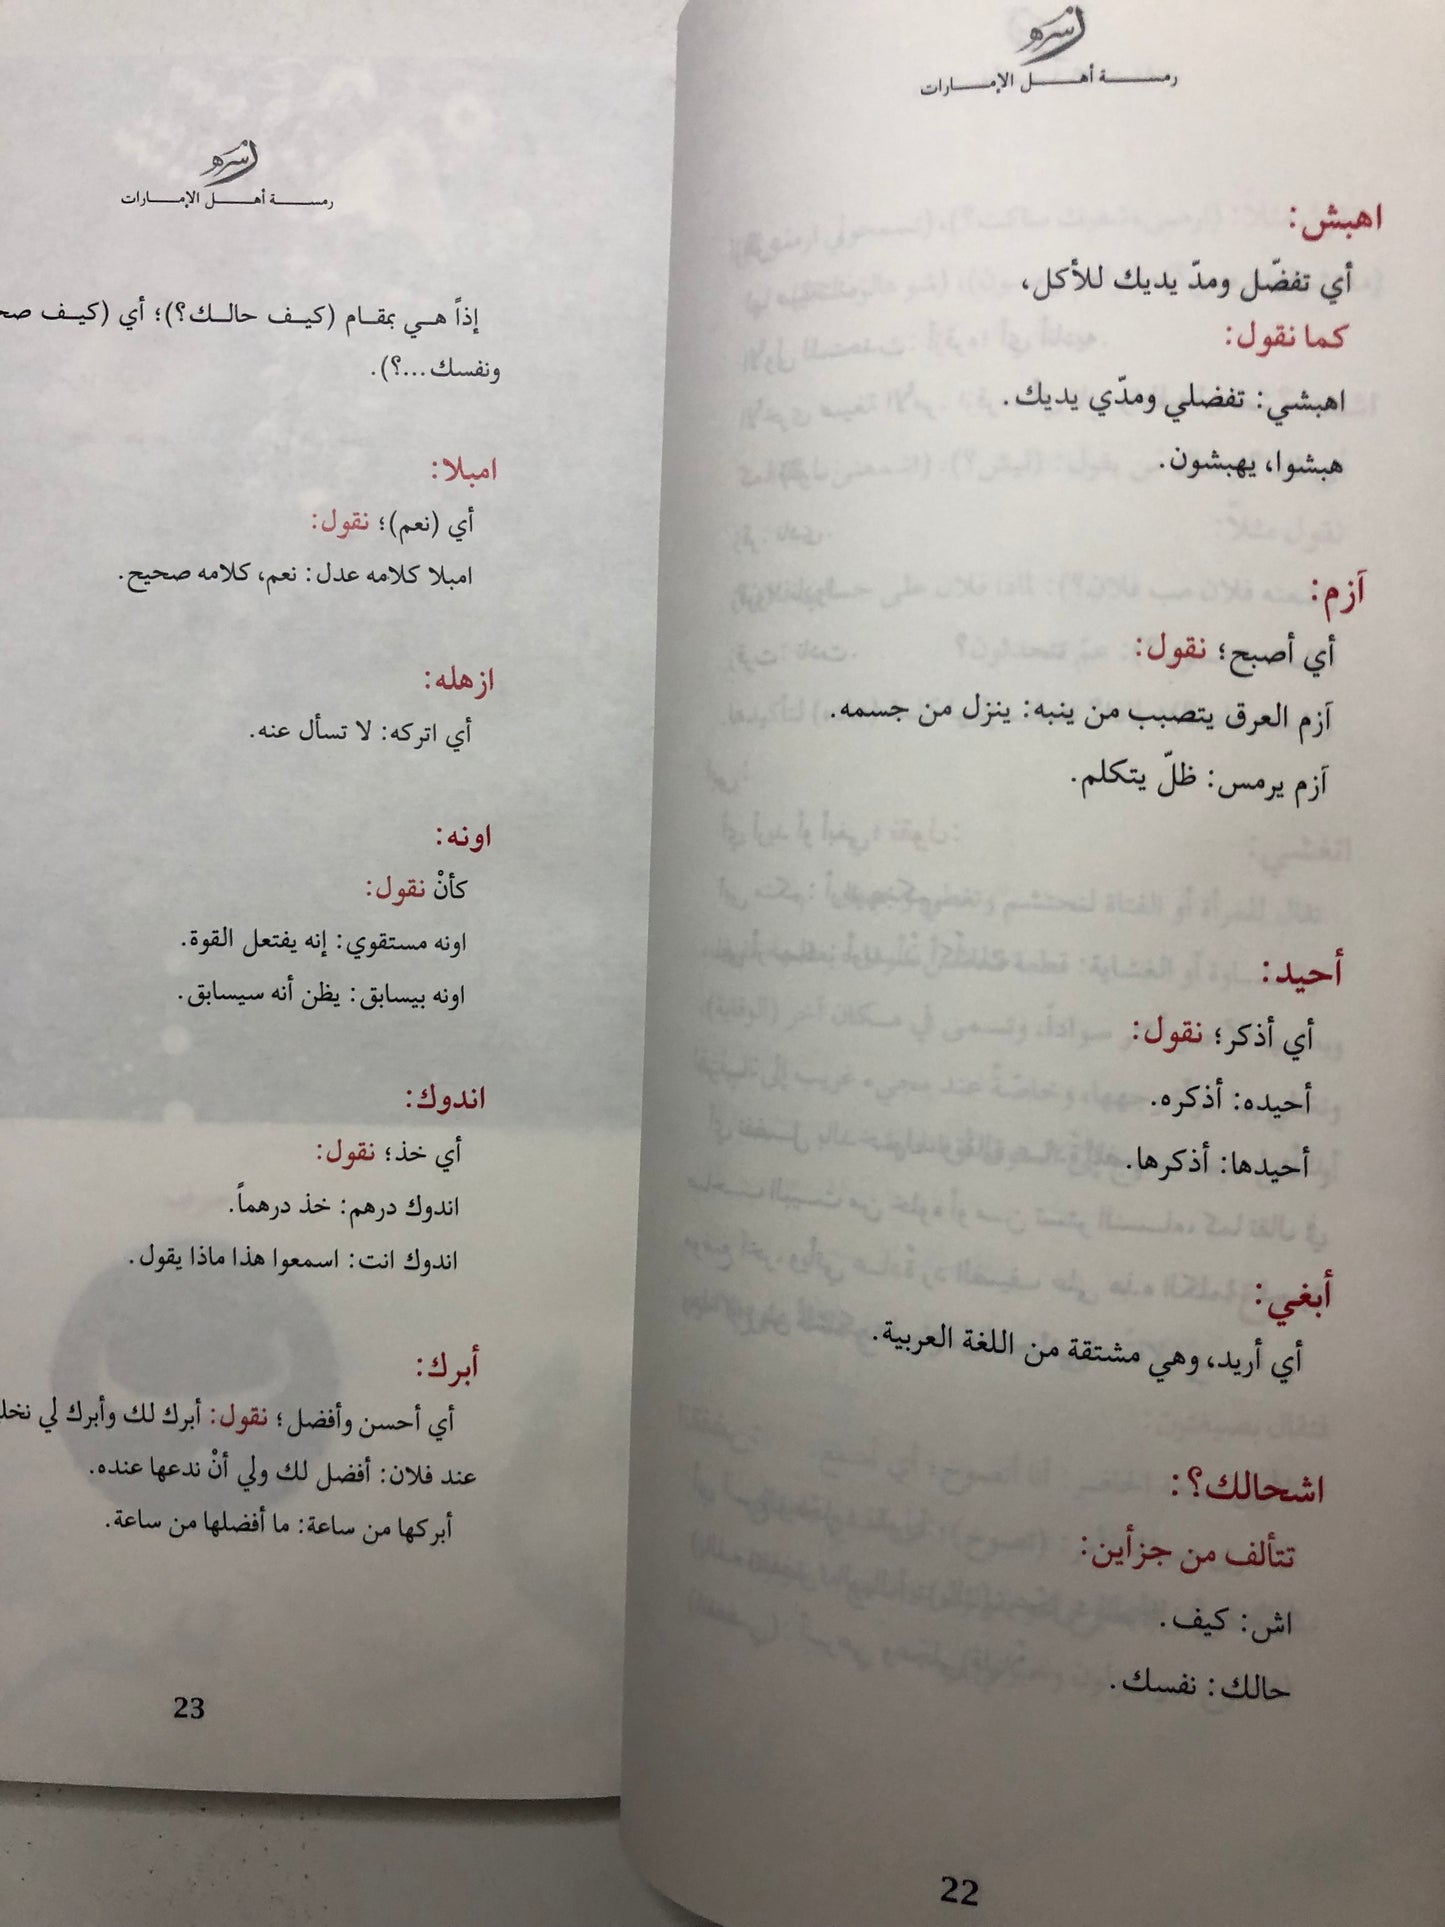 رمسة أهل الإمارات
اهبش:
أي تفضّل ومدّ يديك للأكل،
كما نقول:
اهبشي: تفضلي ومدّي يديك.
هبشوا، يهبشون.
آزم:
أي أصبح؛ نقول:
آزم العرق يتصبب من ينبه: ينزل من جسمه.
آزم يرمس: ظلّ يتكلم.
أحيد:
أي أذكر؛ نقول:
أحيده: أذكره.
أحيدها: أذكرها.
أبغي:
أي أريد، وهي مشتقة من اللغة العربية.
اشحالك؟:
تتألف من جزأين:
اش: كيف.
حالك: نفسك.
22
رمسة أهل الإمارات
إذاً هي بمقام (كيف حالك؟)؛ أي (كيف
ونفسك...؟).
امبلا:
أي (نعم)؛ نقول:
امبلا كلامه عدل: نعم، كلامه صحيح.
ازهله:
أي اتركه: لا تسأل عنه.
اونه:
كأنْ نقول:
اونه مستقوي: إنه يفتعل القوة.
اونه بيسابق: يظن أنه سيسابق.
اندوك:
أي خذ؛ نقول:
اندوك درهم: خذ درهماً.
اندوك انت: اسمعوا هذا ماذا يقول.
أبرك:
أي أحسن وأفضل؛ نقول: أبرك لك وأبرك لي
عند فلان: أفضل لك ولي أنْ ندعها عنده.
أبركها من ساعة: ما أفضلها من ساعة.
23